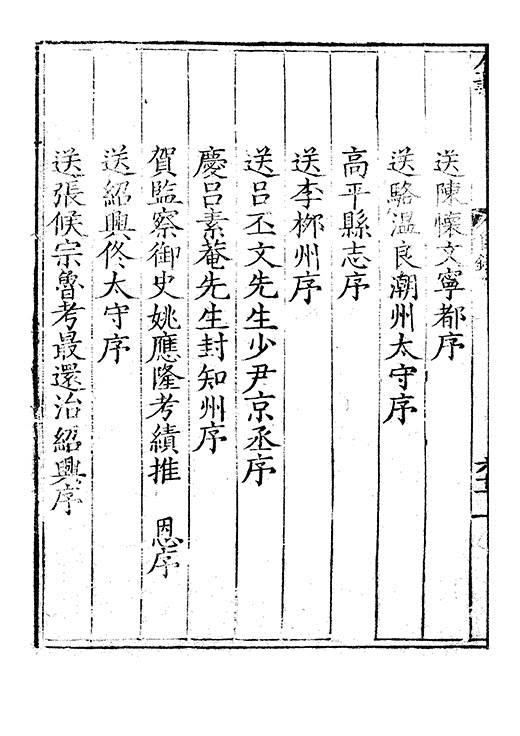 送陳懷文寧都序
送駱溫良潮州太守序
高平縣志序
送李柳州序
送呂丕文先生少尹京丞序
慶呂素菴先生封知州序
賀監察御史姚應隆考績推 恩序
送紹興佟太守序
送張候宗魯考最還治紹興序